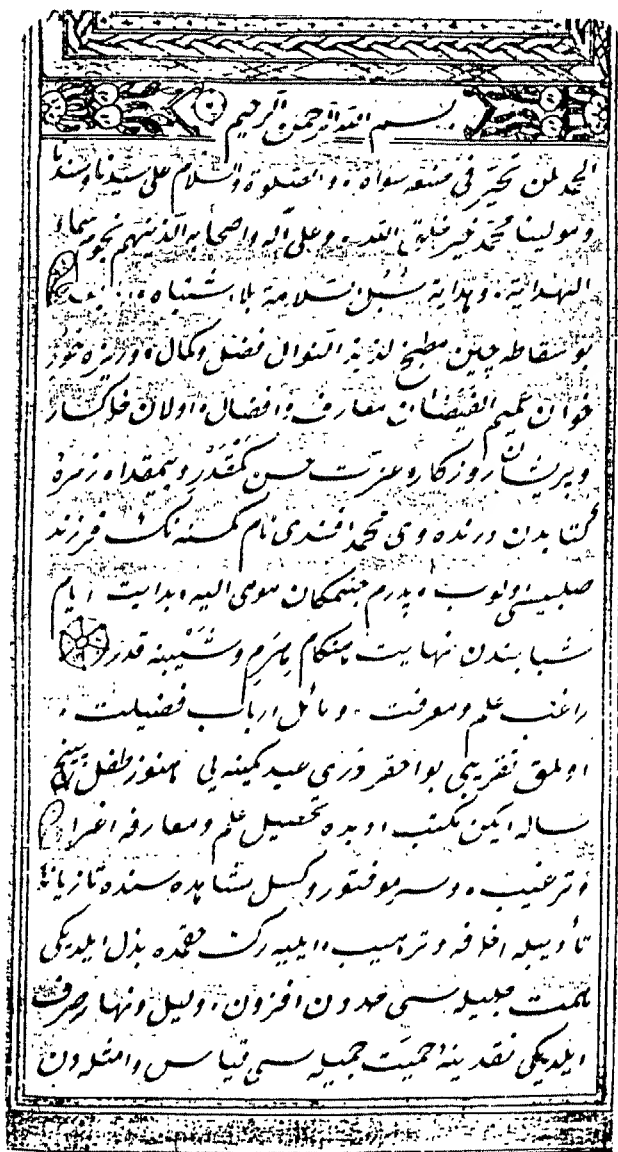 بسم الله الرحمن الرحيم
الحمد لمن تحيّر فى صنعه سواه، والصلوة والسلام على سيّدنا وسندنا
ومولينا محمّد خير خلق الله، وعلى آله واصحابه الّذينهم نجوم سماء
الهداية، وهداية سُبُل سلامة بلا اشتباه، بعد
بو سقاطه چين مطبخ لذيذ النوال فضل وكمال، وريزه خور
خوان عميم الفيضان معارف وافضال، اولان خاكسار
وپريشان روزكار، عزت حسن كمقدر وبيمقدار، زمره
كتابدن درنده وى محمد افندى نام كمسنه نك فرزند
صلبيسى اولوب، پدرم جنتمكان مومى اليه، بدايت ايام
شبابندن نهايت هنكام هرم وشيبنه قدر
راغب علم ومعرفت، ومائل ارباب فضيلت،
اولمق تقريبى بو احقر ورى عبد كمينه يى هنوز طفل پنج
ساله ايكن مكتب اوبده تحصيل علم ومعارفه اغرا
وترغيب، وسرمو فتور وكسل مشاهده سنده تازيانۀ
تأديبله اخافه وترهيب، ايليه رك حقمده بذل ايلديكى
همت جليله سى حددن افزون، وليل ونهار صرف
ايلديكى نقدينۀ حميت جميله سى قياس وامثلدن